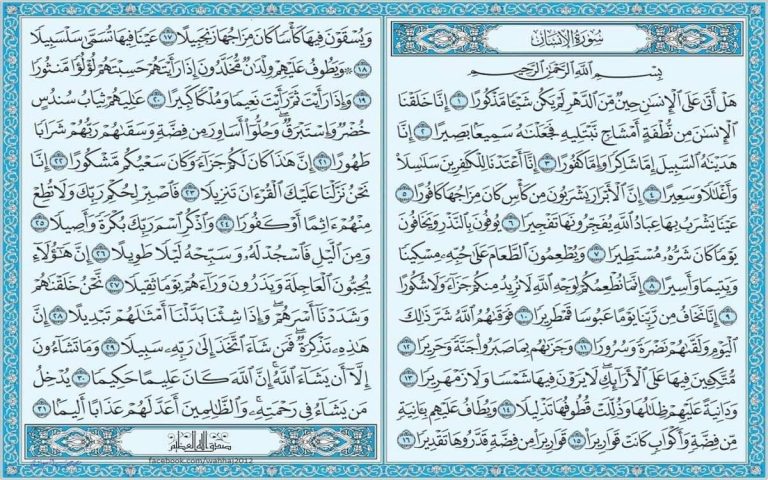 سُورَةُ الْإِنسَانِ
بِسْمِ اللَّهِ الرَّحْمَٰنِ الرَّحِيمِ
هَلْ أَتَىٰ عَلَى الْإِنسَٰنِ حِينٌ مِّنَ الدَّهْرِ لَمْ يَكُن شَيْئًا مَّذْكُورًا ١ إِنَّا خَلَقْنَا
الْإِنسَٰنَ مِن نُّطْفَةٍ أَمْشَاجٍ نَّبْتَلِيهِ فَجَعَلْنَٰهُ سَمِيعًا بَصِيرًا ٢ إِنَّا
هَدَيْنَٰهُ السَّبِيلَ إِمَّا شَاكِرًا وَإِمَّا كَفُورًا ٣ إِنَّا أَعْتَدْنَا لِلْكَٰفِرِينَ سَلَٰسِلَا
وَأَغْلَٰلًا وَسَعِيرًا ٤ إِنَّ الْأَبْرَارَ يَشْرَبُونَ مِن كَأْسٍ كَانَ مِزَاجُهَا كَافُورًا ٥
عَيْنًا يَشْرَبُ بِهَا عِبَادُ اللَّهِ يُفَجِّرُونَهَا تَفْجِيرًا ٦ يُوفُونَ بِالنَّذْرِ وَيَخَافُونَ
يَوْمًا كَانَ شَرُّهُ مُسْتَطِيرًا ٧ وَيُطْعِمُونَ الطَّعَامَ عَلَىٰ حُبِّهِ مِسْكِينًا
وَيَتِيمًا وَأَسِيرًا ٨ إِنَّمَا نُطْعِمُكُمْ لِوَجْهِ اللَّهِ لَا نُرِيدُ مِنكُمْ جَزَاءً وَلَا شُكُورًا
٩ إِنَّا نَخَافُ مِن رَّبِّنَا يَوْمًا عَبُوسًا قَمْطَرِيرًا ١٠ فَوَقَىٰهُمُ اللَّهُ شَرَّ ذَٰلِكَ
الْيَوْمِ وَلَقَّىٰهُمْ نَضْرَةً وَسُرُورًا ١١ وَجَزَىٰهُم بِمَا صَبَرُوا جَنَّةً وَحَرِيرًا ١٢
مُّتَّكِئِينَ فِيهَا عَلَى الْأَرَائِكِ لَا يَرَوْنَ فِيهَا شَمْسًا وَلَا زَمْهَرِيرًا ١٣
وَدَانِيَةً عَلَيْهِمْ ظِلَٰلُهَا وَذُلِّلَتْ قُطُوفُهَا تَذْلِيلًا ١٤ وَيُطَافُ عَلَيْهِم بِـَٔانِيَةٍ
مِّن فِضَّةٍ وَأَكْوَابٍ كَانَتْ قَوَارِيرَا ١٥ قَوَارِيرَا مِن فِضَّةٍ قَدَّرُوهَا تَقْدِيرًا ١٦
وَيُسْقَوْنَ فِيهَا كَأْسًا كَانَ مِزَاجُهَا زَنجَبِيلًا ١٧ عَيْنًا فِيهَا تُسَمَّىٰ سَلْسَبِيلًا
١٨ وَيَطُوفُ عَلَيْهِمْ وِلْدَٰنٌ مُّخَلَّدُونَ إِذَا رَأَيْتَهُمْ حَسِبْتَهُمْ لُؤْلُؤًا مَّنثُورًا
١٩ وَإِذَا رَأَيْتَ ثَمَّ رَأَيْتَ نَعِيمًا وَمُلْكًا كَبِيرًا ٢٠ عَٰلِيَهُمْ ثِيَابُ سُندُسٍ
خُضْرٌ وَإِسْتَبْرَقٌ وَحُلُّوا أَسَاوِرَ مِن فِضَّةٍ وَسَقَىٰهُمْ رَبُّهُمْ شَرَابًا
طَهُورًا ٢١ إِنَّ هَٰذَا كَانَ لَكُمْ جَزَاءً وَكَانَ سَعْيُكُم مَّشْكُورًا ٢٢ إِنَّا
نَحْنُ نَزَّلْنَا عَلَيْكَ الْقُرْءَانَ تَنزِيلًا ٢٣ فَاصْبِرْ لِحُكْمِ رَبِّكَ وَلَا تُطِعْ
مِنْهُمْ ءَاثِمًا أَوْ كَفُورًا ٢٤ وَاذْكُرِ اسْمَ رَبِّكَ بُكْرَةً وَأَصِيلًا ٢٥
وَمِنَ اللَّيْلِ فَاسْجُدْ لَهُ وَسَبِّحْهُ لَيْلًا طَوِيلًا ٢٦ إِنَّ هَٰؤُلَاءِ
يُحِبُّونَ الْعَاجِلَةَ وَيَذَرُونَ وَرَاءَهُمْ يَوْمًا ثَقِيلًا ٢٧ نَّحْنُ خَلَقْنَٰهُمْ
وَشَدَدْنَا أَسْرَهُمْ وَإِذَا شِئْنَا بَدَّلْنَا أَمْثَٰلَهُمْ تَبْدِيلًا ٢٨ إِنَّ
هَٰذِهِ تَذْكِرَةٌ فَمَن شَاءَ اتَّخَذَ إِلَىٰ رَبِّهِ سَبِيلًا ٢٩ وَمَا تَشَاءُونَ
إِلَّا أَن يَشَاءَ اللَّهُ إِنَّ اللَّهَ كَانَ عَلِيمًا حَكِيمًا ٣٠ يُدْخِلُ
مَن يَشَاءُ فِي رَحْمَتِهِ وَالظَّٰلِمِينَ أَعَدَّ لَهُمْ عَذَابًا أَلِيمًا ٣١
صدق الله العظيم
facebook.com/wahhaj2012